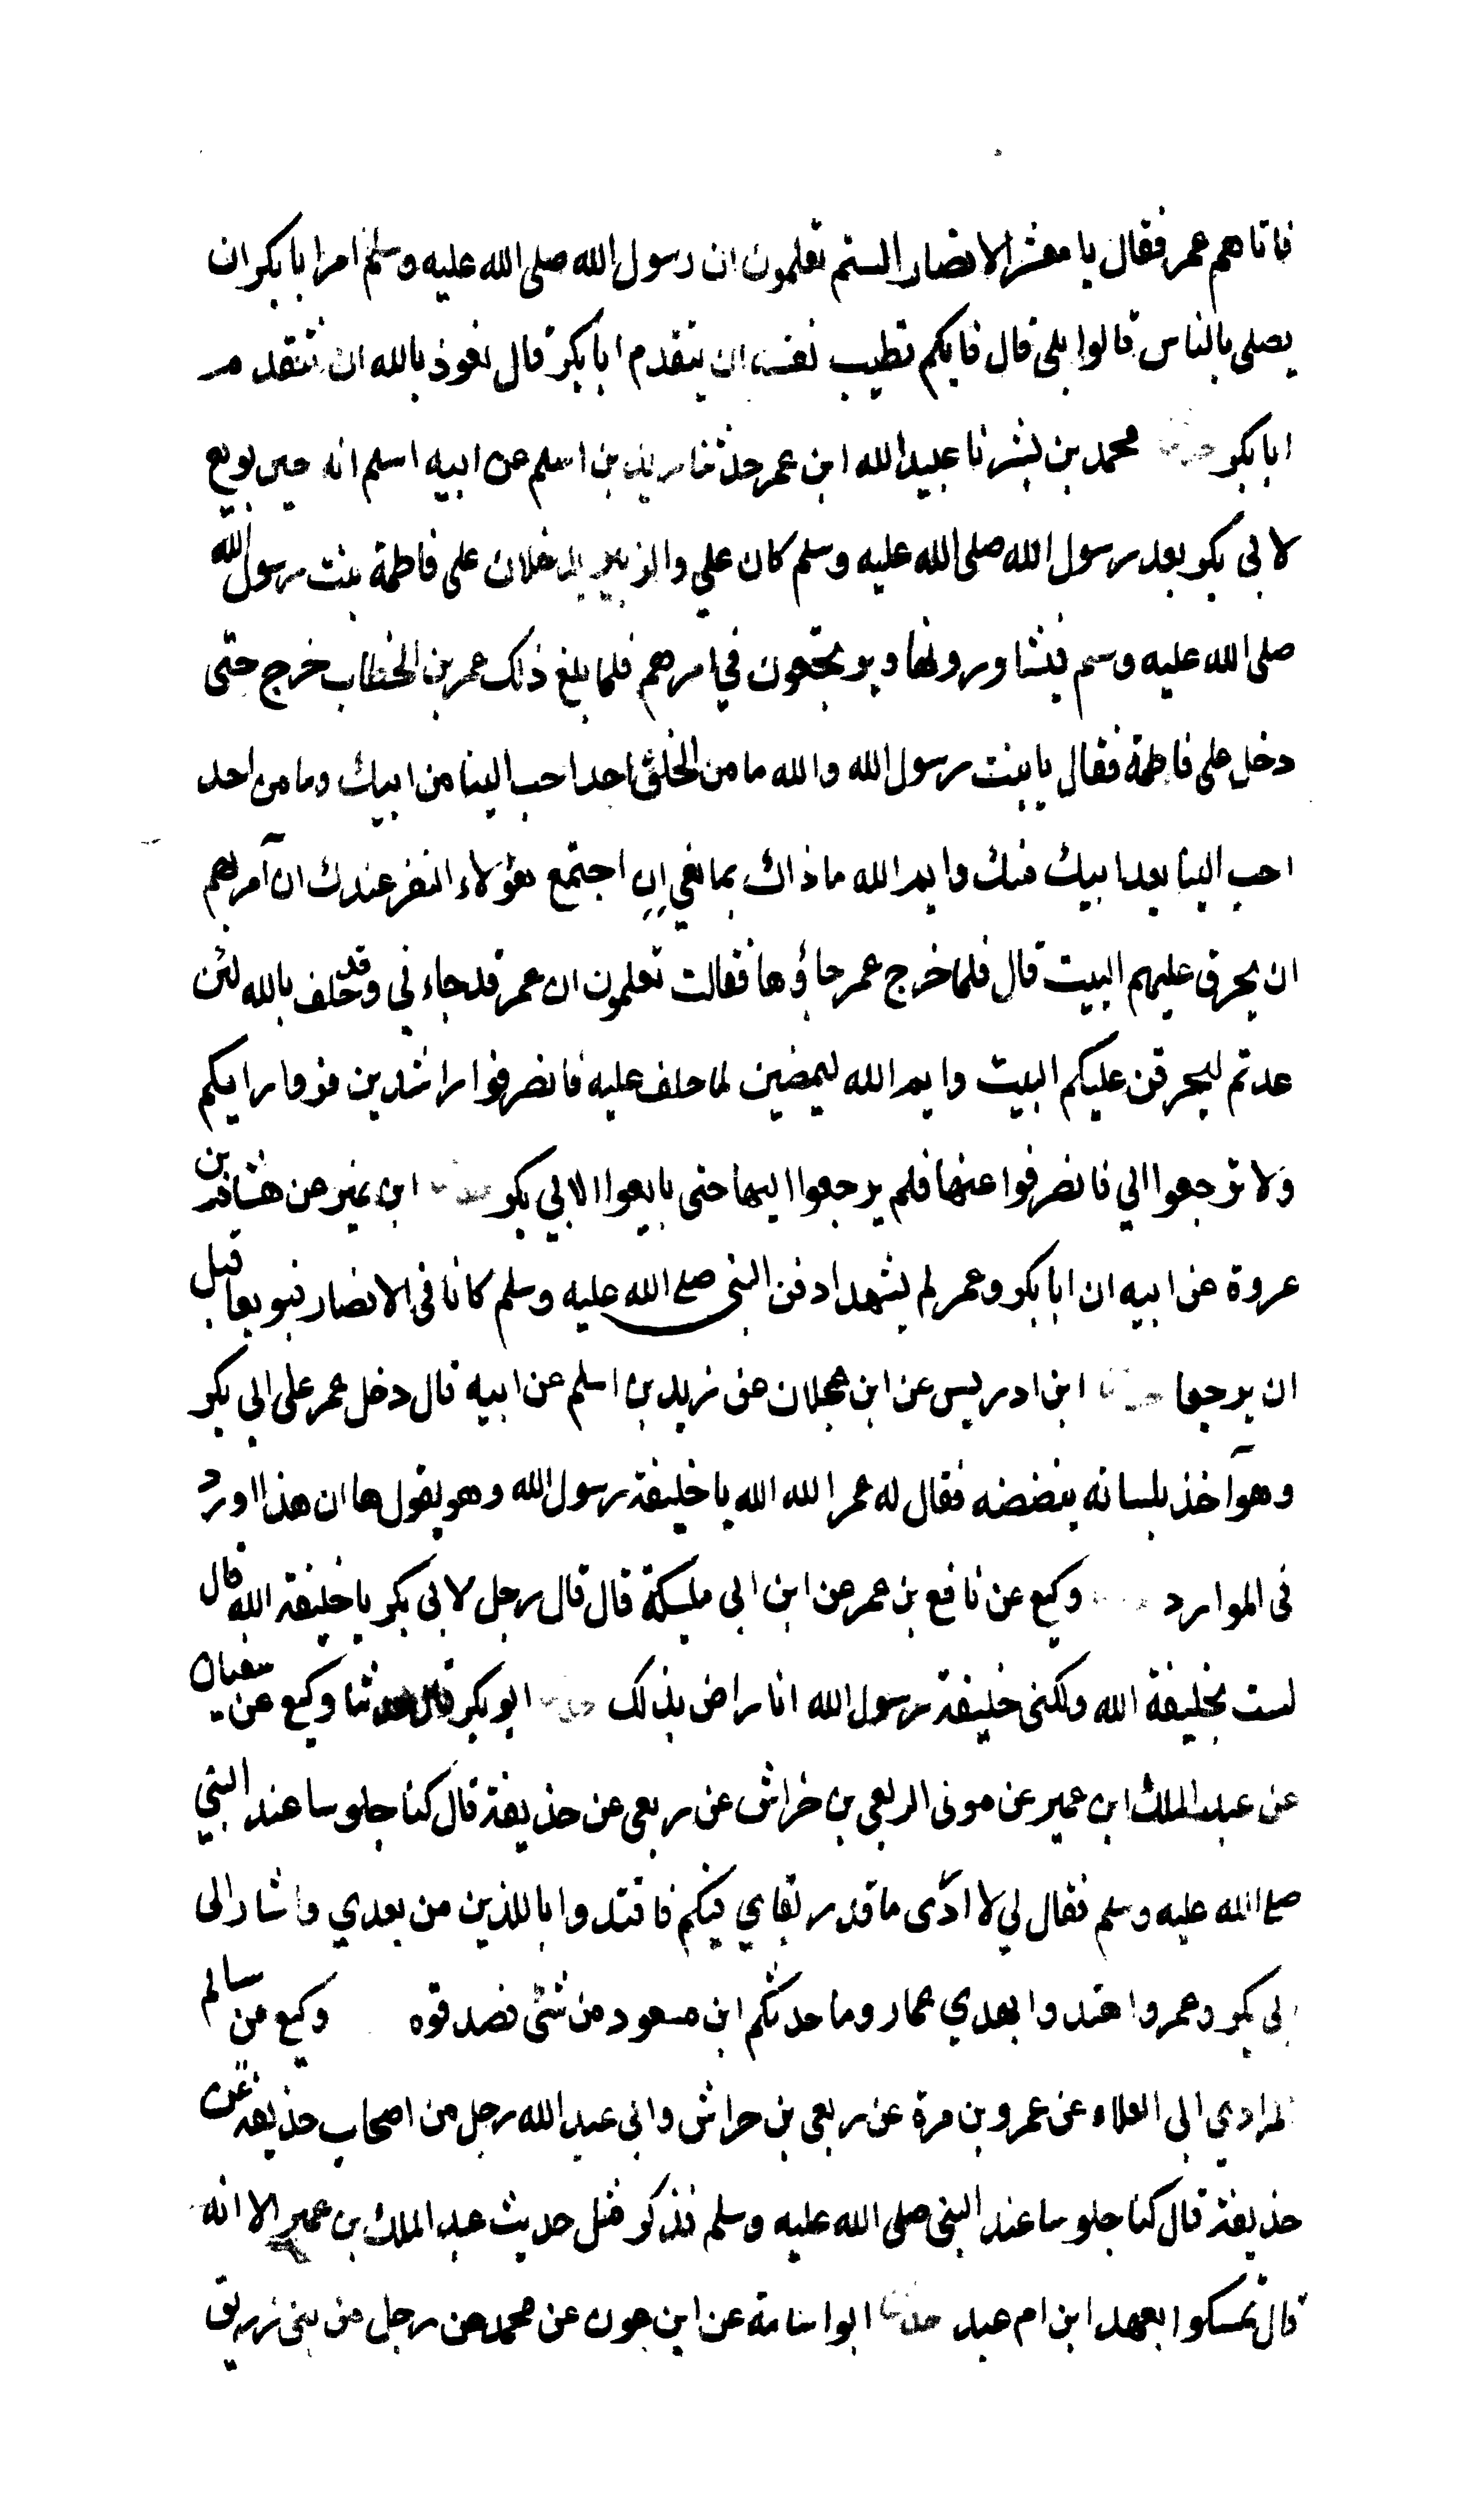 فاتاهم عمر فقال يا معشر الانصار الستم تعلمون ان رسول الله صلى الله عليه وسلم امر ابا بكر ان
يصلى بالناس قالوا بلى قال فايكم تطيب نفسه ان يتقدم ابا بكر قال نعوذ بالله ان نتقدم
ابا بكر حدثنا محمد بن بشر نا عبيد الله ابن عمر حدثنا زيد بن اسلم عن ابيه اسلم انه حين بويع
لابي بكر بعد رسول الله صلى الله عليه وسلم كان علي والزبير يدخلان على فاطمة بنت رسول الله
صلى الله عليه وسم فيشاورونها ويرتجعون في امرهم فلما بلغ ذلك عمر بن الخطاب خرج حتى
دخل على فاطمة فقال يا بنت رسول الله والله ما من الخلق احد احب الينا من ابيك وما من احد
احب الينا بعد ابيك منك وايم الله ما ذاك بمانعي ان اجتمع هؤلاء النفر عندك ان آمر بهم
ان يحرق عليهم البيت قال فلما خرج عمر جاؤها فقالت تعلمون ان عمر قد جاءني وقد حلف بالله لئن
عدتم ليحرقن عليكم البيت وايم الله ليمضين لما حلف عليه فانصرفوا راشدين فروا رايكم
ولا ترجعوا الي فانصرفوا عنها فلم يرجعوا اليها حتى بايعوا لابي بكر حدثنا ابن نمير عن هشام بن
عروة عن ابيه ان ابا بكر وعمر لم يشهدا دفن النبي صلى الله عليه وسلم كانا في الانصار فبويعا قبل
ان يرجعا حدثنا ابن ادريس عن ابن عجلان عن زيد بن اسلم عن ابيه قال دخل عمر على ابي بكر
وهو آخذ بلسانه ينضنضه فقال له عمر الله الله يا خليفة رسول الله وهو يقول ها ان هذا اورد
نى الموارد وكيع عن نافع بن عمر عن ابن ابي مليكة قال قال رجل لابي بكر يا خليفة الله قال
لست بخليفة الله ولكني خليفة رسول الله انا راض بذلك حدثنا ابو بكر قال حدثنا وكيع عن سفيان
عن عبد الملك ابن عمير عن مولى الربعي بن خراش عن ربعي عن حذيفة قال كنا جلوسا عند النبي
صلى الله عليه وسلم فقال لي لا ادرى ما قدر بقاي فيكم فاقتدوا باللذين من بعدي واشار الى
ابي بكر وعمر واهتدوا بهدي عمار وما حدثكم ابن مسعود من شئ فصدقوه وكيع عن سالم
المرادي ابي العلاء عن عمرو بن مرة عن ربعي بن حراش وابي عبد الله رجل من اصحاب حذيفة عن
حذيفة قال كنا جلوسا عند النبي صلى الله عليه وسلم فذكر مثل حديث عبد الملك بن عمير الا انه
قال تمسكوا بعهد ابن ام عبد حدثنا ابو اسامة عن ابن عون عن محمد عن رجل من بني زريق